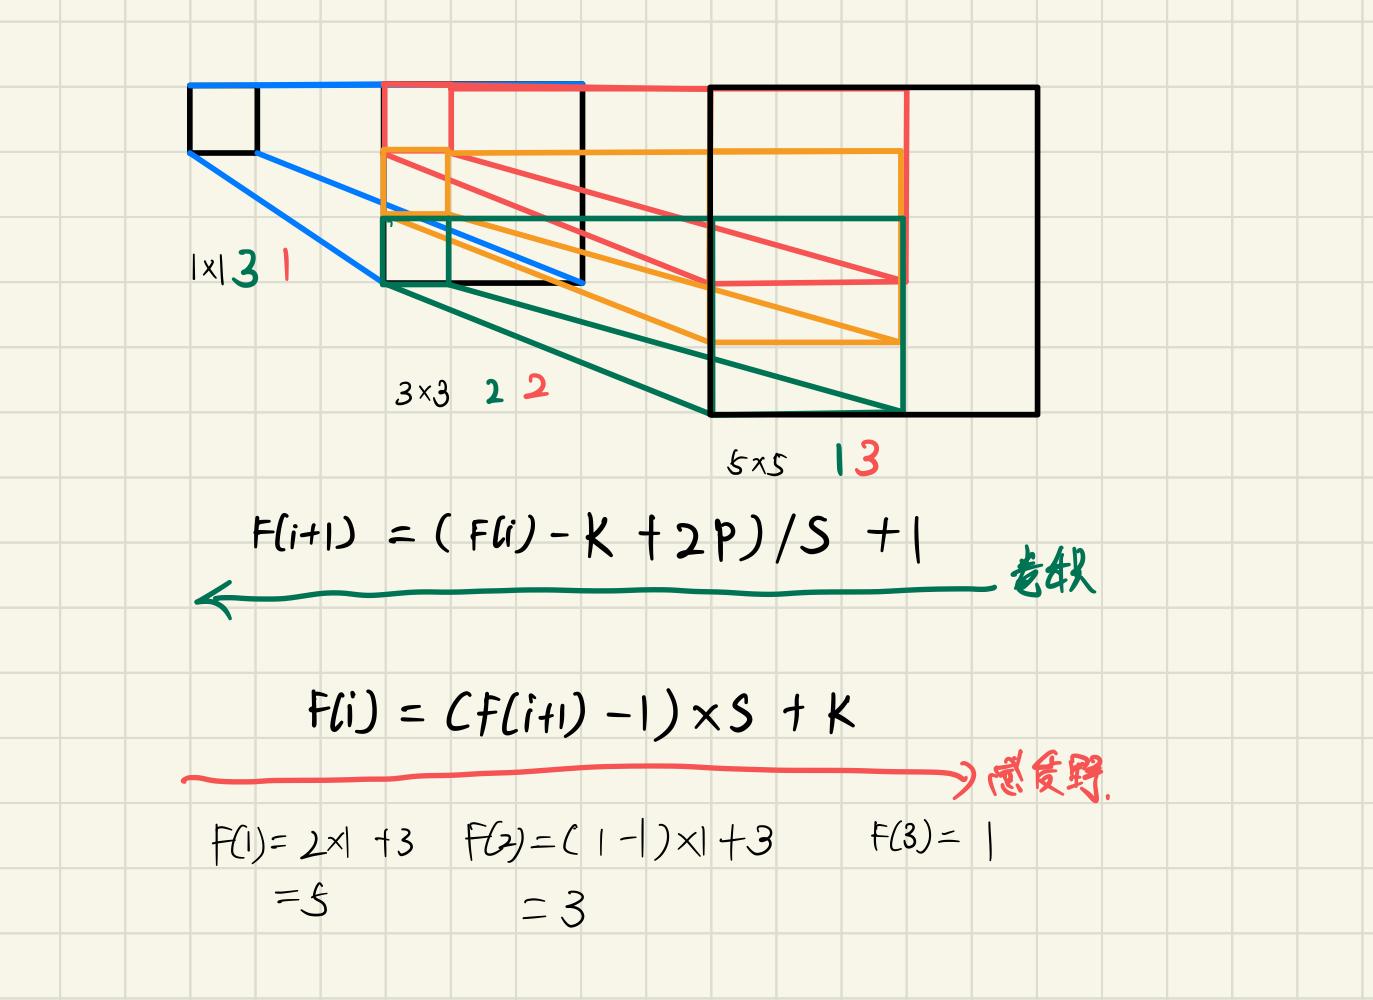 1×1 3 1
3×3 2 2
5×5 1 3
F(i+1) = (F(i) - K + 2P) / S + 1
卷积
F(i) = (F(i+1) - 1) × S + K
感受野.
F(1) = 2×1 + 3 F(2) = (1 - 1) × 1 + 3 F(3) = 1
= 5 = 3